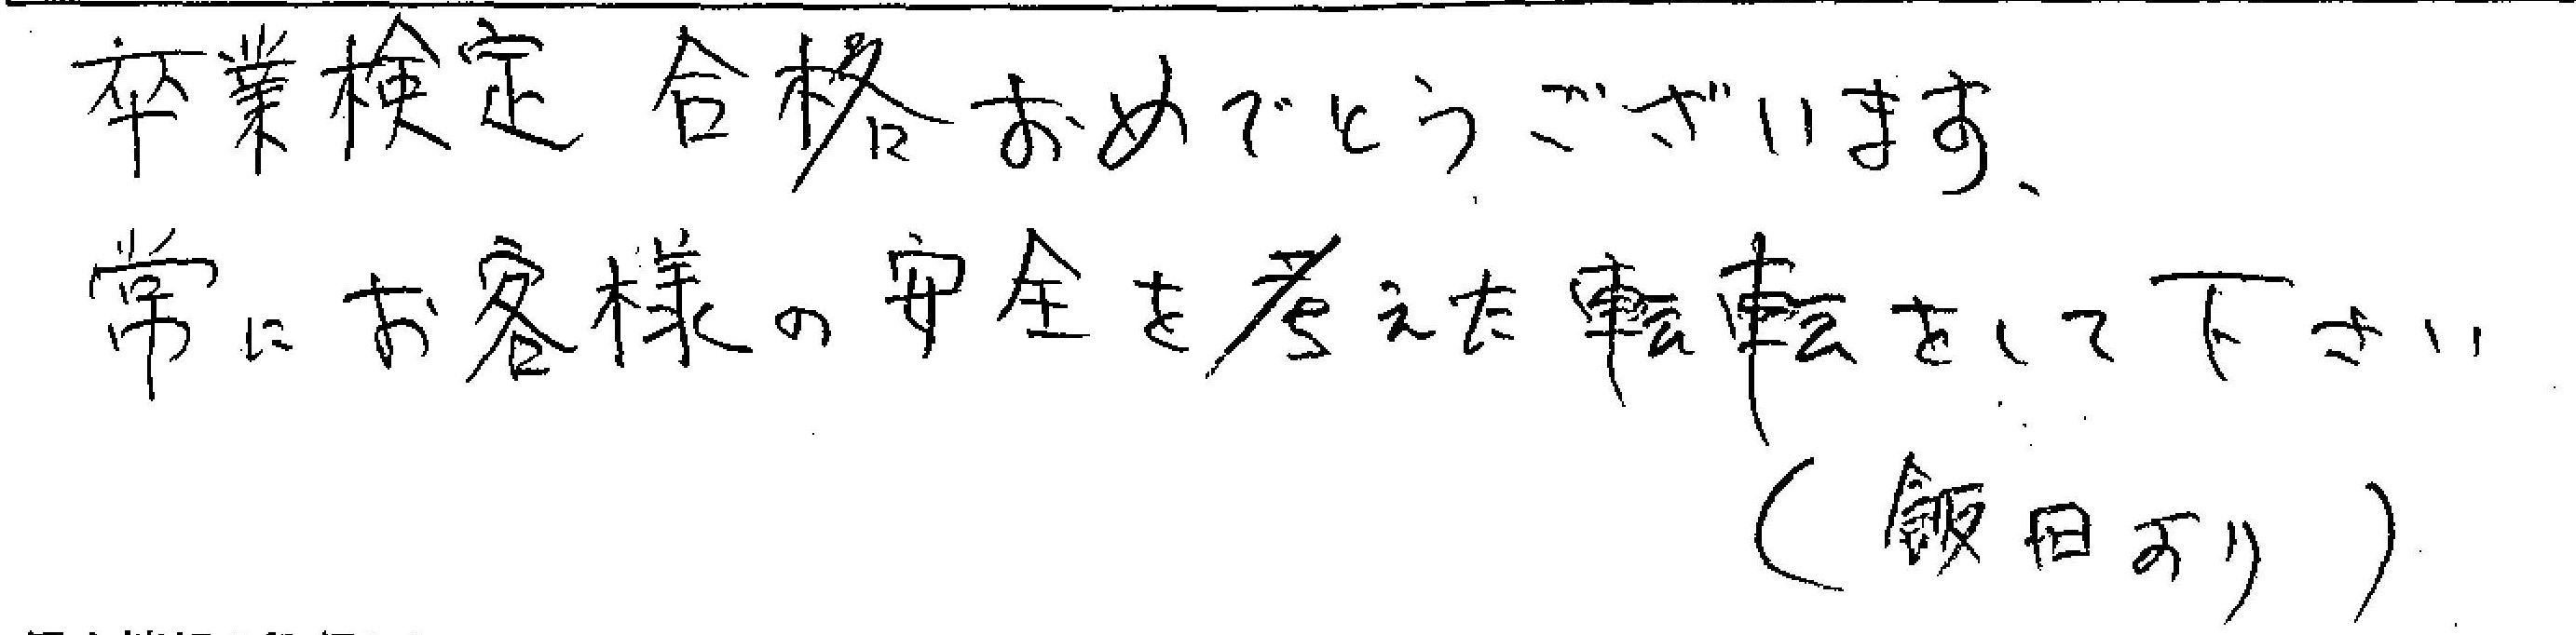 卒業検定 合格おめでとうございます、
常にお客様の安全を考えた転転をして下さい
(飯田より)